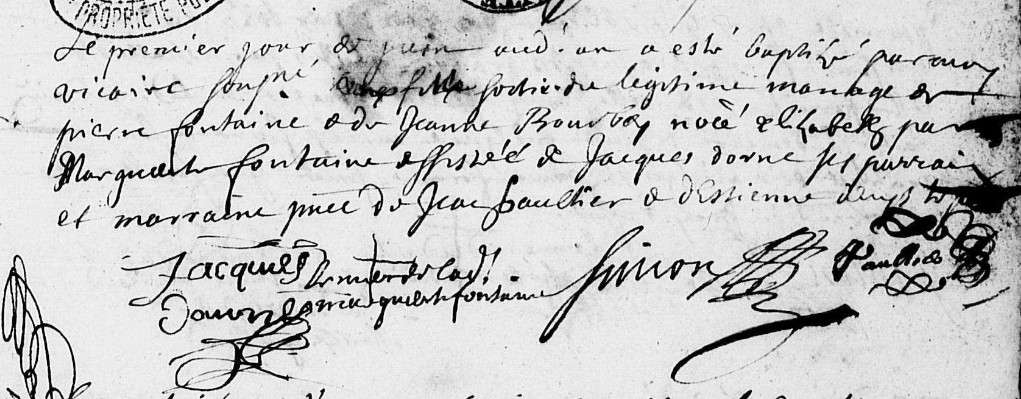 PROPRIÉTÉ PU
Le premier jour de juin aud. an a esté baptisé par moy
vicaire sousné fille sortie du legitime mariage de
pierre fontaine & de Jeanne Bourboy nõée elizabeth par
Marguerite fontaine assistée de Jacques dorne ses parrain
et marraine pnce de Jean Gaultier & d'Estienne
Jacques Le mere de lad.
Daurne marguerite fontaine
Simon